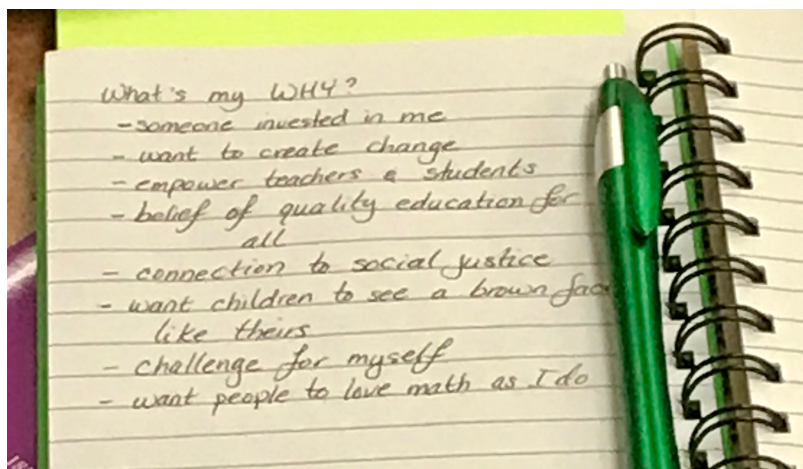 What's my WHY?
- someone invested in me
- want to create change
- empower teachers & students
- belief of quality education for
all
- connection to social justice
- want children to see a brown face
like theirs
- challenge for myself
- want people to love math as I do